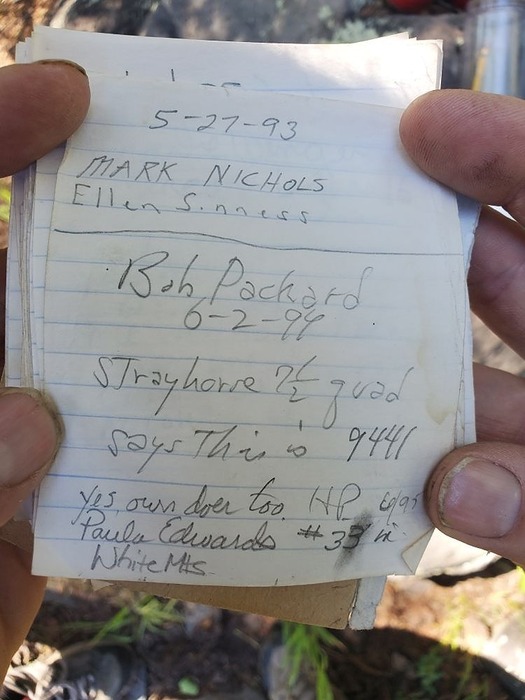 5-27-93
MARK NICHOLS
Ellen Sinness
Bob Packard
6-2-94
STrayhorse 7½ quad
says This is 9441
yes, own does too. HP 6/95
Paula Edwards #33 in
White Mts